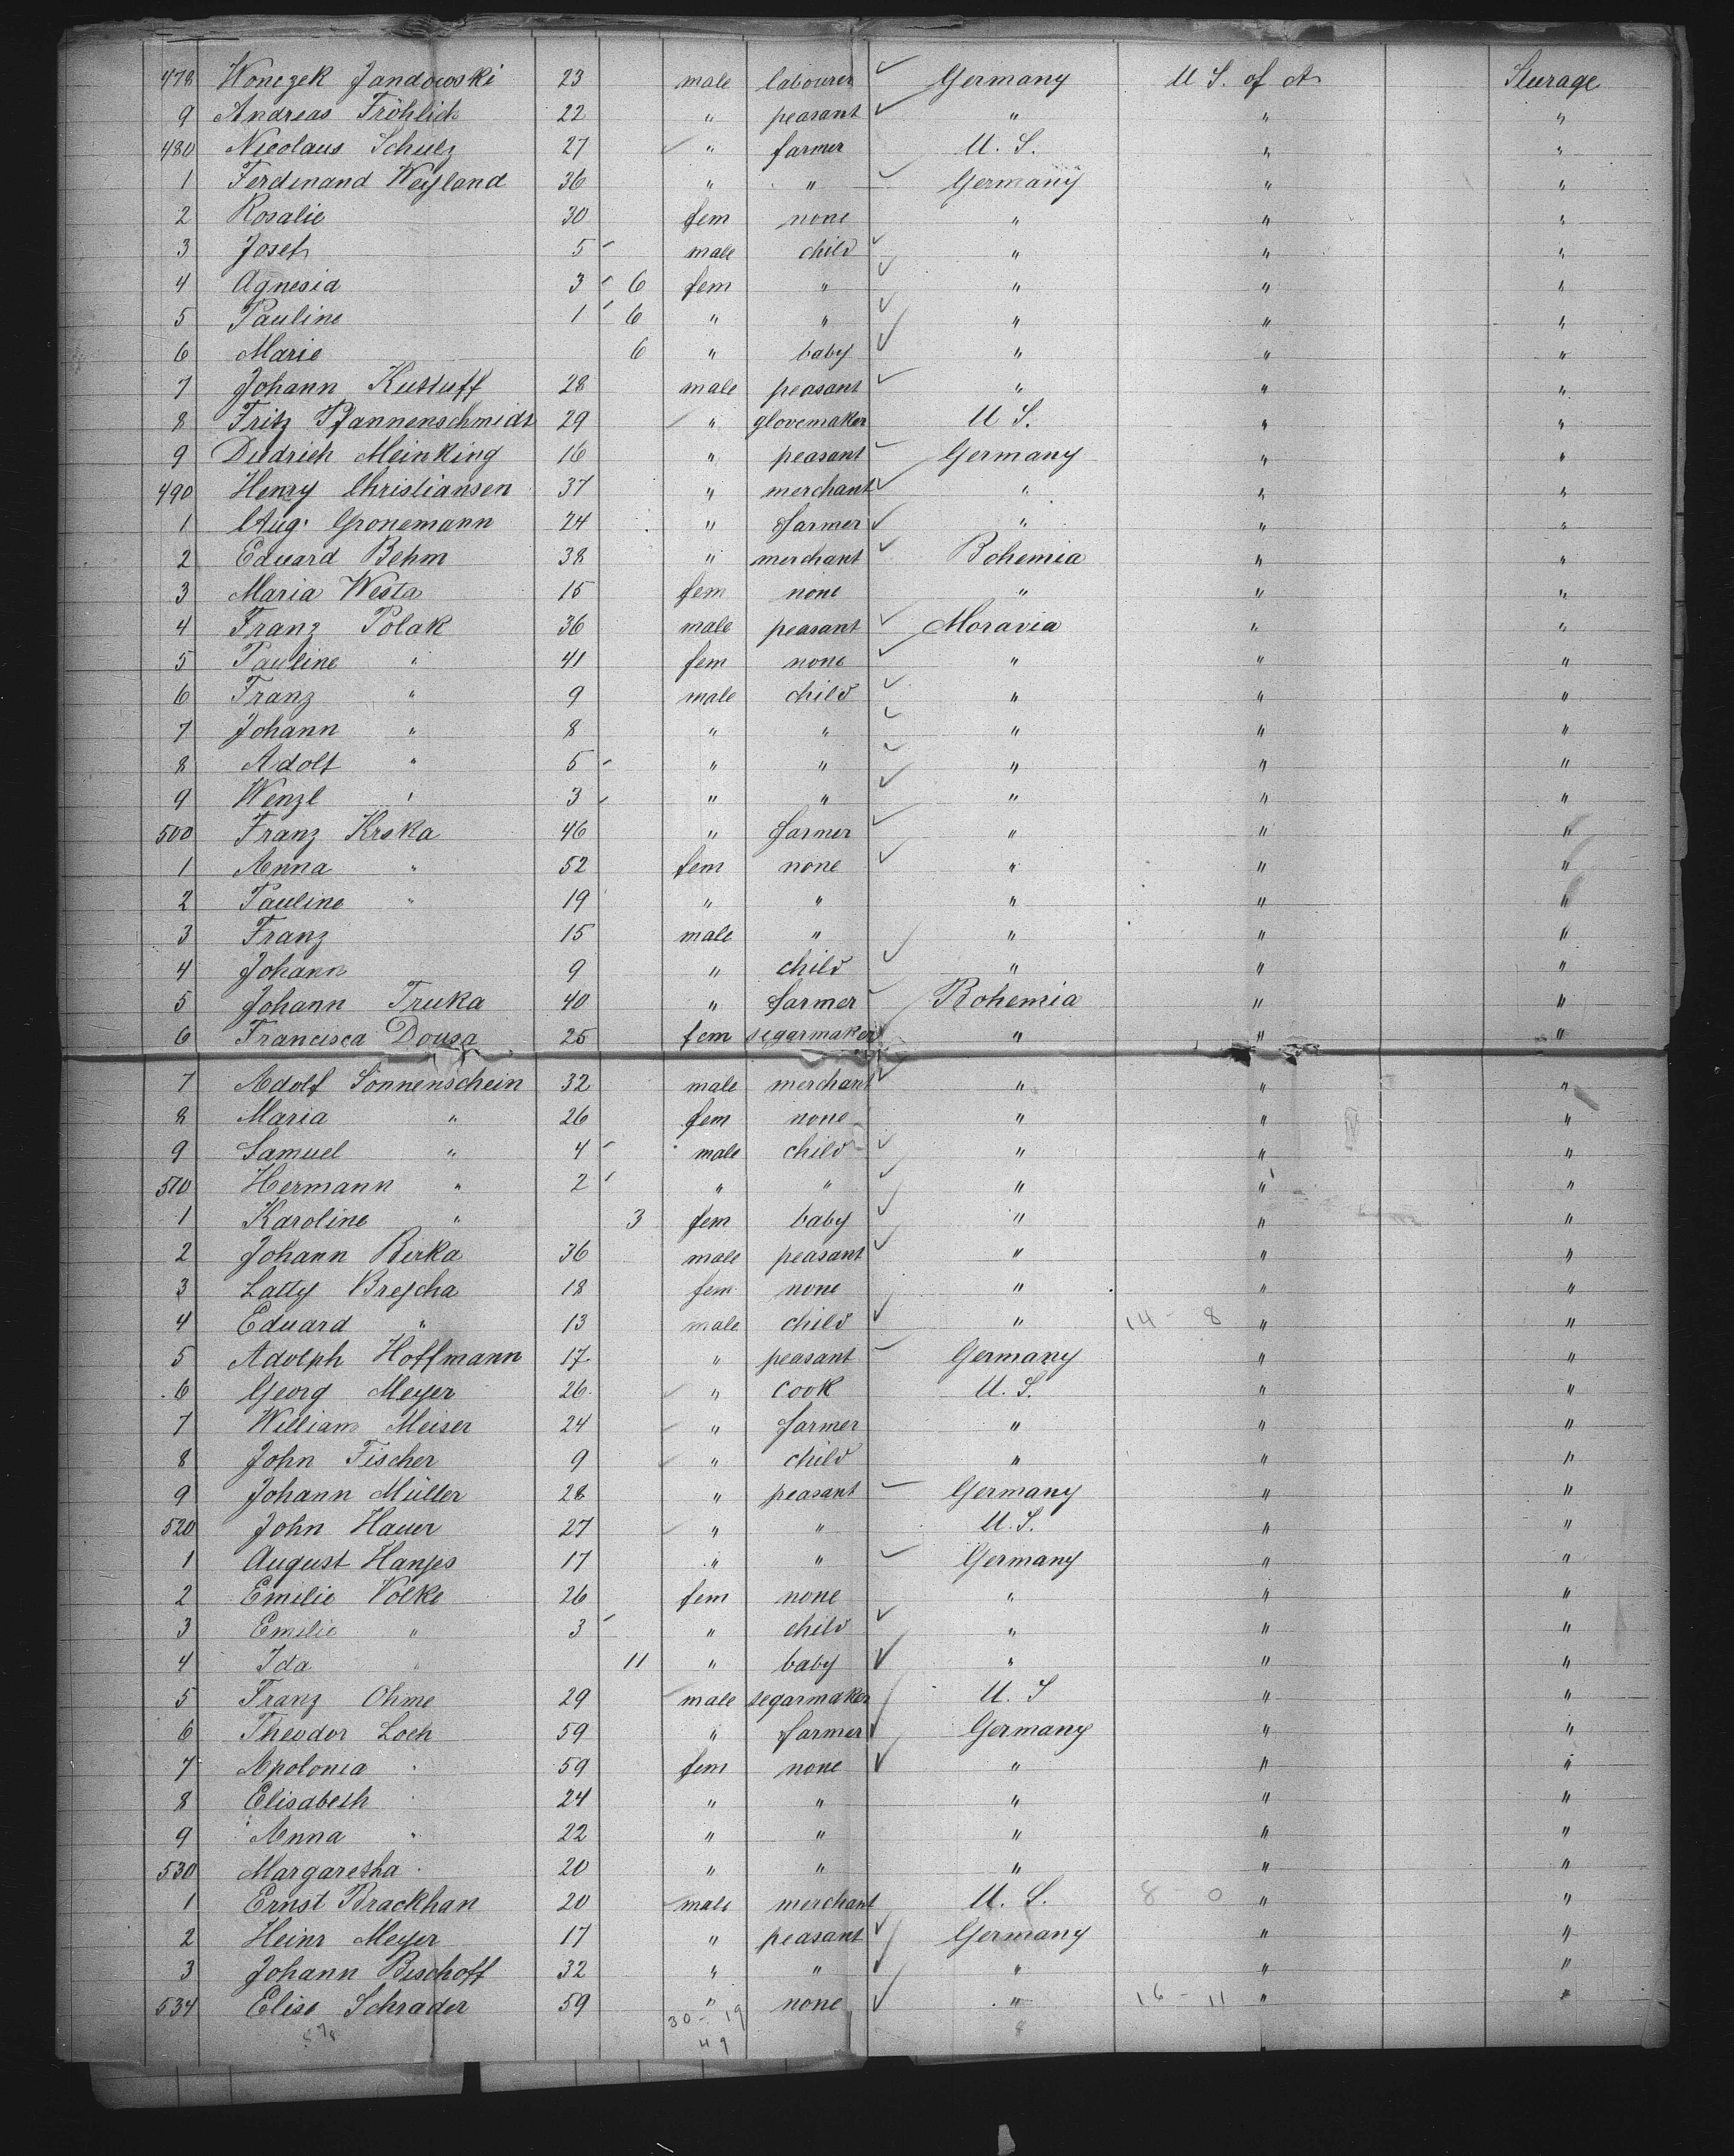 478 Wonczek Jandowski 23 male labourer Germany U S. of A Steerage
9 Andreas Fröhlich 22 " peasant " " "
480 Nicolaus Schulz 27 " farmer U. S. " "
1 Ferdinand Weyland 36 " " Germany " "
2 Rosalie 30 fem none " " "
3 Josef 5 male child " " "
4 Agnesia 3 6 fem " " " "
5 Pauline 1 6 " " " " "
6 Marie 6 " baby " " "
7 Johann Kustuff 28 male peasant " " "
8 Fritz Pfannenschmidt 29 " glovemaker U S. " "
9 Diedrich Meinking 16 " peasant Germany " "
490 Henry Christiansen 37 " merchant " " "
1 Aug. Gronemann 24 " farmer " " "
2 Eduard Behm 38 " merchant Bohemia " "
3 Maria Westa 15 fem none " " "
4 Franz Polak 36 male peasant Moravia " "
5 Pauline " 41 fem none " " "
6 Franz " 9 male child " " "
7 Johann " 8 " " " " "
8 Adolf " 5 " " " " "
9 Wenzl " 3 " " " " "
500 Franz Krska 46 " farmer " " "
1 Anna " 52 fem none " " "
2 Pauline " 19 " " " " "
3 Franz 15 male " " " "
4 Johann 9 " child " " "
5 Johann Truka 40 " farmer Bohemia " "
6 Francisca Dousa 25 fem segarmaker " " "
7 Adolf Sonnenschein 32 male merchant " " "
8 Maria " 26 fem none " " "
9 Samuel " 4 male child " " "
510 Hermann " 2 " " " " "
1 Karoline " 3 fem baby " " "
2 Johann Berka 36 male peasant " " "
3 Latty Brejcha 18 fem none " " "
4 Eduard " 13 male child " 14 - 8 " "
5 Adolph Hoffmann 17 " peasant Germany " "
6 Georg Meyer 26 " cook U. S. " "
7 William Meiser 24 " farmer " " "
8 John Fischer 9 " child " " "
9 Johann Müller 28 " peasant Germany " "
520 John Hauer 27 " " U. S. " "
1 August Hanjes 17 " " Germany " "
2 Emilie Volke 26 fem none " " "
3 Emilie " 3 " child " " "
4 Ida " 11 " baby " " "
5 Franz Ohme 29 male segarmaker U. S " "
6 Theodor Loch 59 " farmer Germany " "
7 Apolonia " 59 fem none " " "
8 Elisabeth " 24 " " " " "
9 Anna " 22 " " " " "
530 Margaretha " 20 " " " " "
1 Ernst Brackhan 20 male merchant U. S. 8 - 0 " "
2 Heinr Meyer 17 " peasant Germany " "
3 Johann Bischoff 32 " " " " "
534 Elise Schrader 59 " none " 16 - 11 " "
30 - 19
49
8